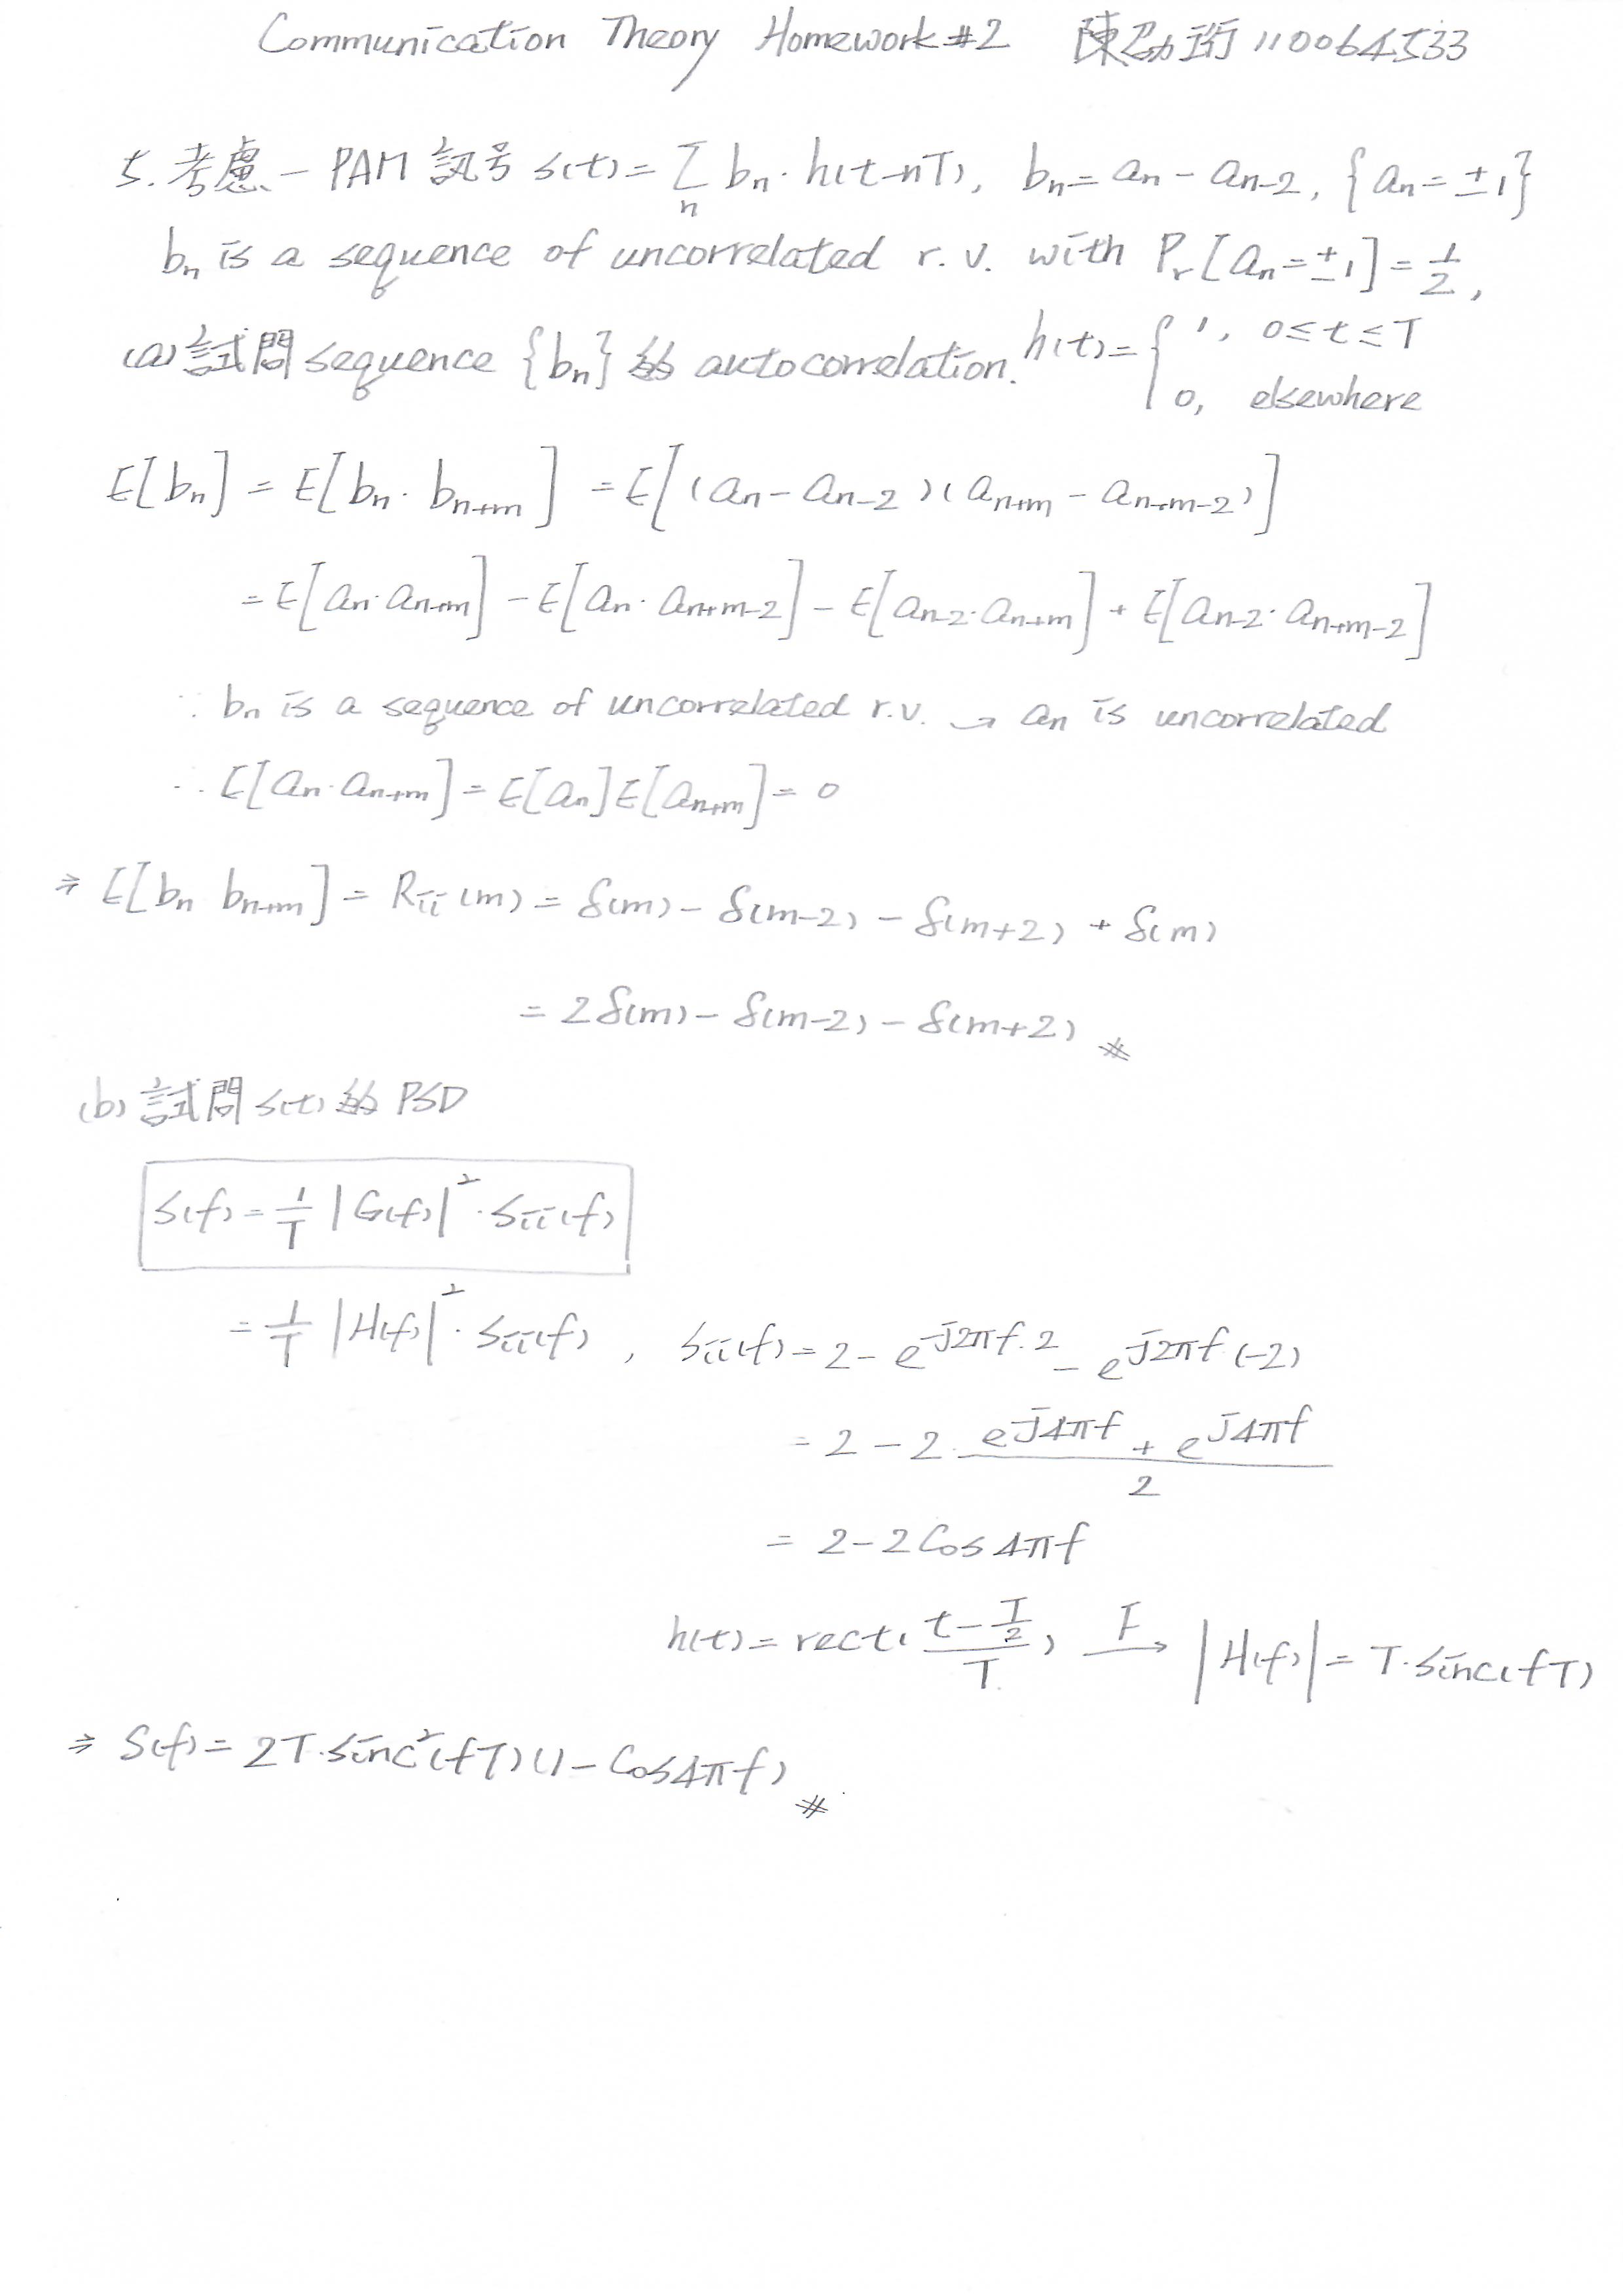 Communication Theory Homework #2 陳劭珩 110064533
5. 考慮一 PAM 訊号 s(t) = Σ_n b_n · h(t-nT), b_n = a_n - a_{n-2}, {a_n = ±1}
b_n is a sequence of uncorrelated r.v. with P_r[a_n = ±1] = 1/2,
(a) 試問 sequence {b_n} 的 autocorrelation. h(t) = { 1, 0≤t≤T
0, elsewhere
E[b_n] = E[b_n · b_{n+m}] = E[(a_n - a_{n-2})(a_{n+m} - a_{n+m-2})]
= E[a_n · a_{n+m}] - E[a_n · a_{n+m-2}] - E[a_{n-2} · a_{n+m}] + E[a_{n-2} · a_{n+m-2}]
∵ b_n is a sequence of uncorrelated r.v. → a_n is uncorrelated
∴ E[a_n · a_{n+m}] = E[a_n]E[a_{n+m}] = 0
⇒ E[b_n b_{n+m}] = R_{ii}(m) = δ(m) - δ(m-2) - δ(m+2) + δ(m)
= 2δ(m) - δ(m-2) - δ(m+2) #
(b) 試問 s(t) 的 PSD
S(f) = 1/T |G(f)|² · S_{ii}(f)
= 1/T |H(f)|² · S_{ii}(f), S_{ii}(f) = 2 - e^{-j2πf·2} - e^{-j2πf(-2)}
= 2 - 2 · (e^{-j4πf} + e^{j4πf})/2
= 2 - 2 Cos 4πf
h(t) = rect((t - T/2)/T) —F→ |H(f)| = T·sinc(fT)
⇒ S(f) = 2T·sinc²(fT)(1 - Cos4πf) #